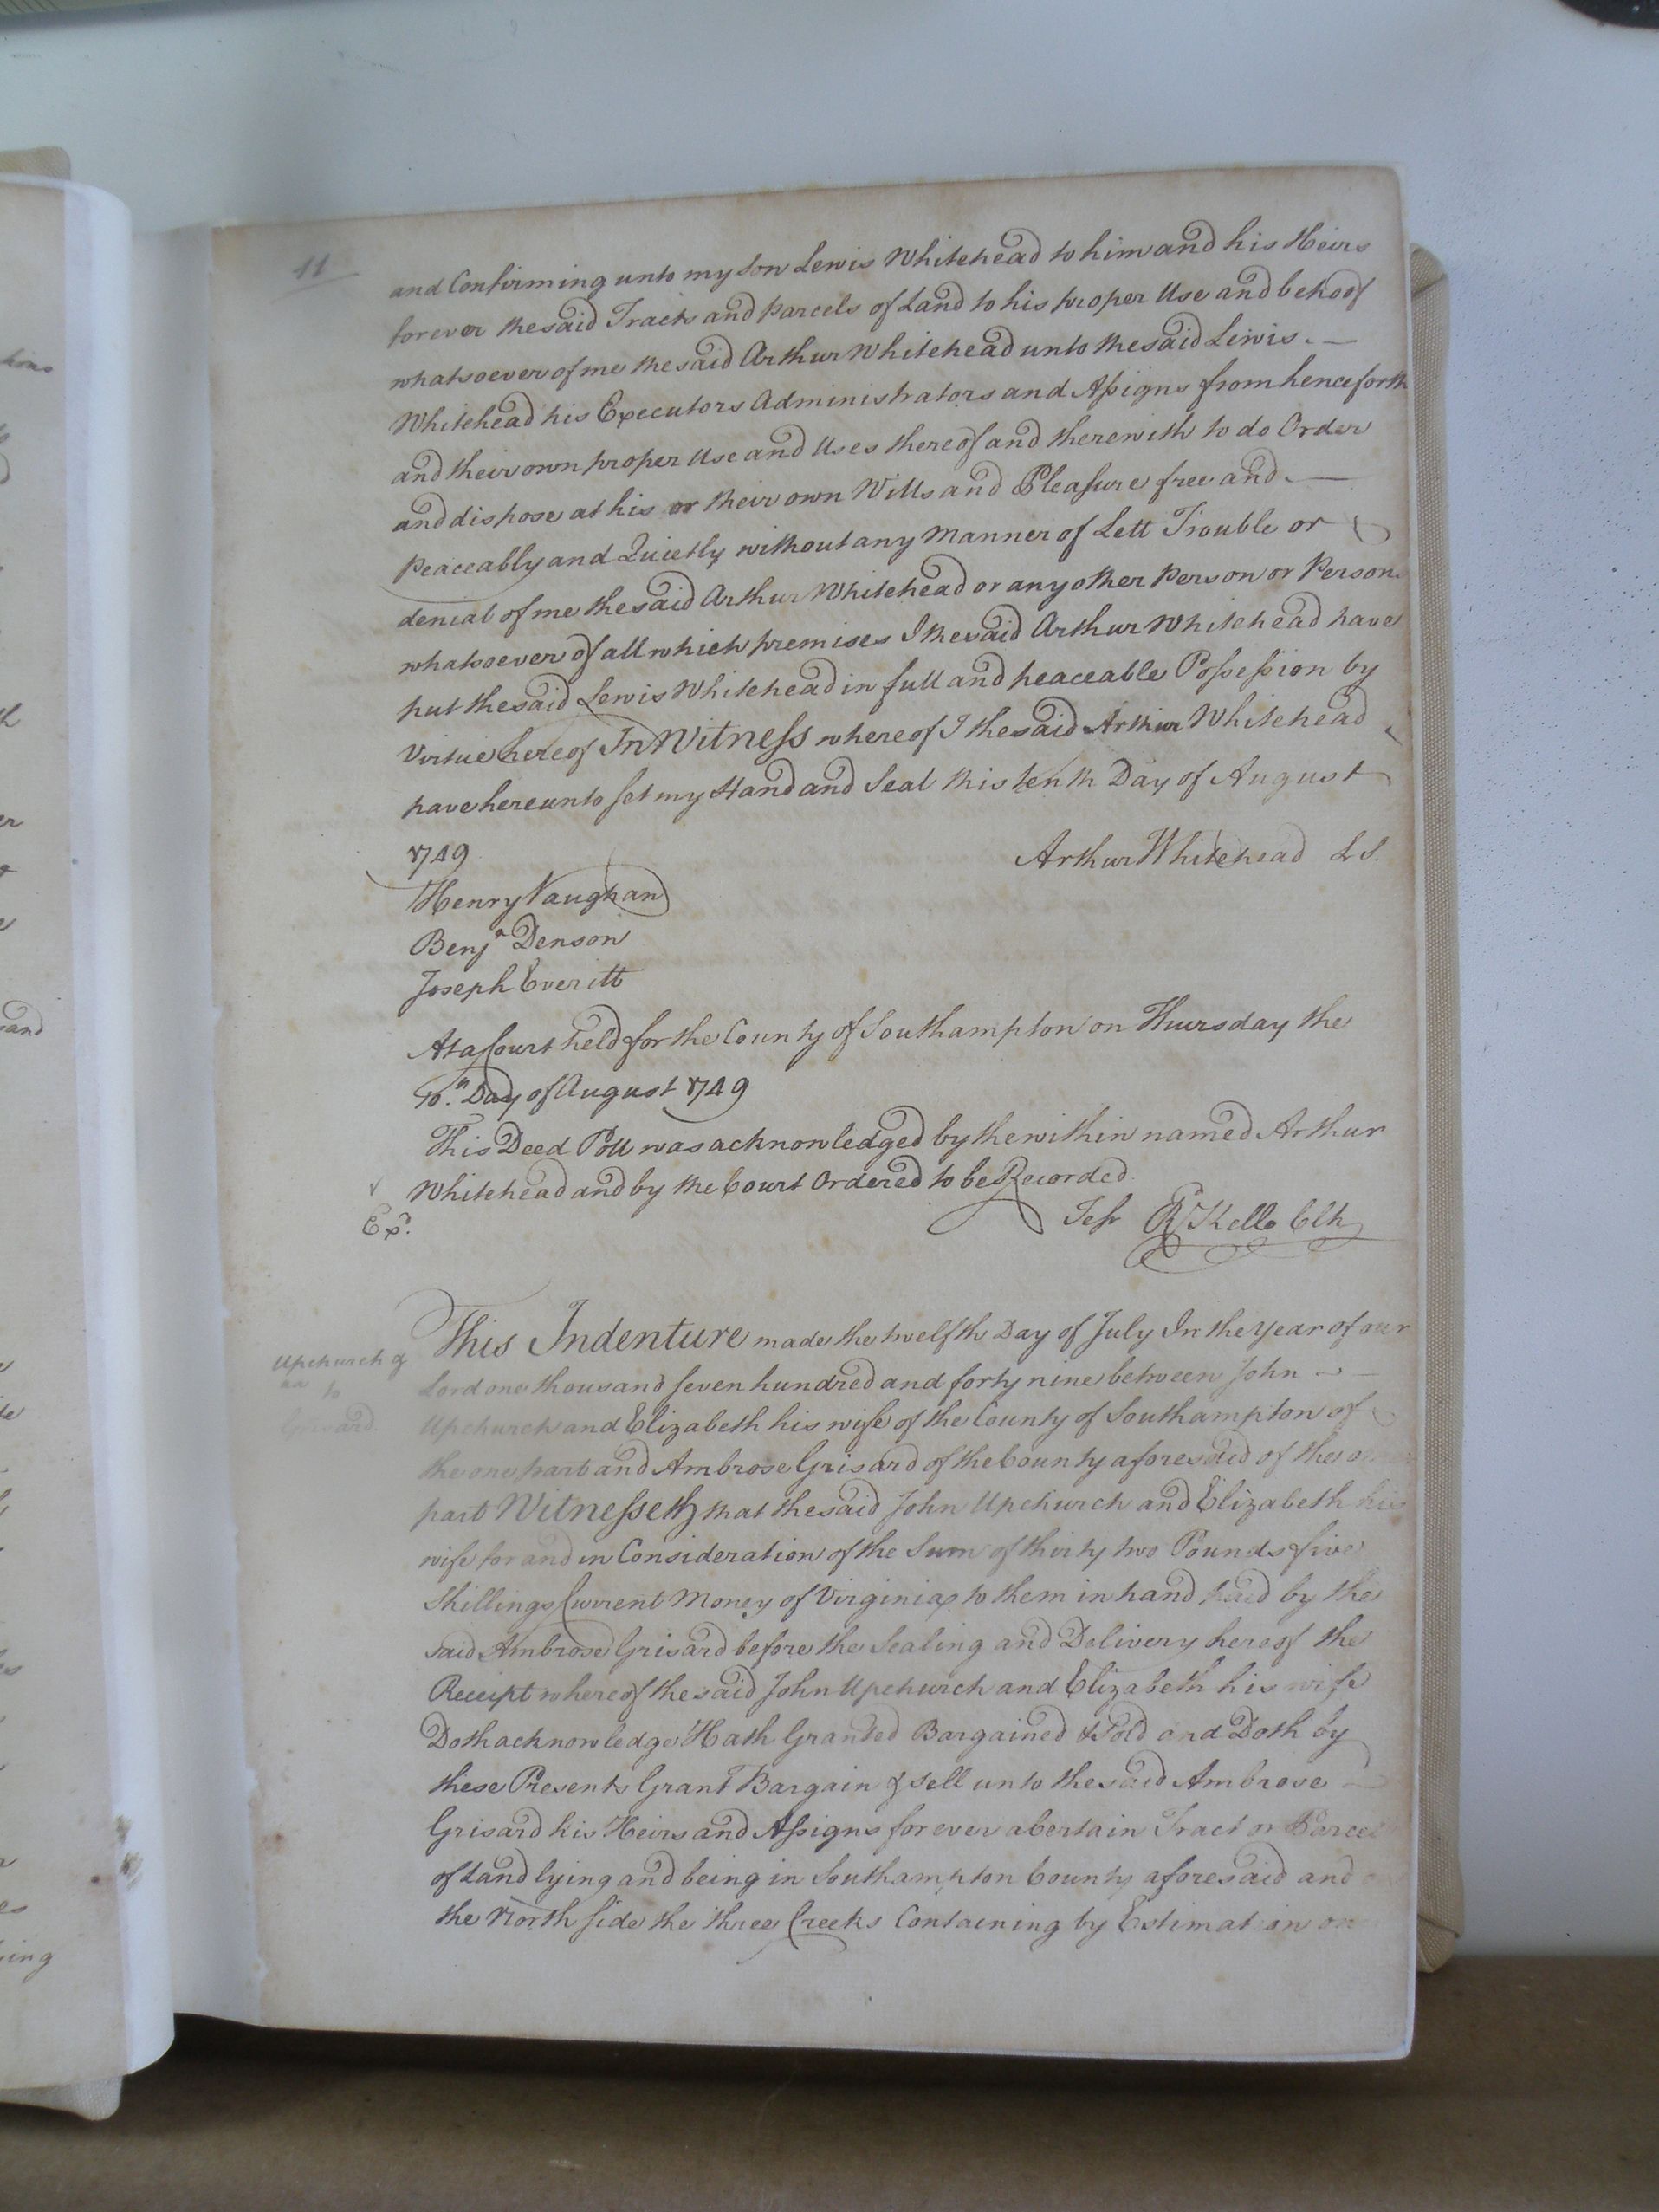 11
and Confirming unto my Son Lewis Whitehead to him and his Heirs
forever the said Tracts and parcels of Land to his proper Use and behoof
whatsoever of me the said Arthur Whitehead unto the said Lewis
Whitehead his Executors Administrators and Assigns from henceforth
and their own proper Use and Uses thereof and therewith to do Order
and dispose at his or their own Wills and Pleasure free and
Peaceably and Quietly without any Manner of Lett Trouble or
denial of me the said Arthur Whitehead or any other Person or Persons
whatsoever of all which premises I the said Arthur Whitehead have
put the said Lewis Whitehead in full and peaceable Possession by
Virtue hereof In Witness whereof I the said Arthur Whitehead
have hereunto set my Hand and Seal this tenth Day of August
1749
Arthur Whitehead L S.
Henry Vaughan
Benja Denson
Joseph Everitt
At a Court held for the County of Southampton on Thursday the
10th Day of August 1749
This Deed Poll was acknowledged by the within named Arthur
Whitehead and by the Court Ordered to be Recorded.
Exd.
Test R Kello Clk
This Indenture made the twelfth Day of July In the year of our
Upchurch &
ux to
Grisard.
Lord one thousand seven hundred and forty nine between John
Upchurch and Elizabeth his wife of the County of Southampton of
the one part and Ambrose Grisard of the County aforesaid of the
part Witnesseth that the said John Upchurch and Elizabeth his
wife for and in Consideration of the Sum of thirty two Pounds five
Shillings Current Money of Virginia to them in hand paid by the
said Ambrose Grisard before the Sealing and Delivery hereof the
Receipt whereof the said John Upchurch and Elizabeth his wife
Doth acknowledge Hath Granted Bargained & Sold and Doth by
these Presents Grant Bargain & sell unto the said Ambrose
Grisard his Heirs and Assigns forever a Certain Tract or Parcel
of Land lying and being in Southampton County aforesaid and
the North side the three Creeks Containing by Estimation on